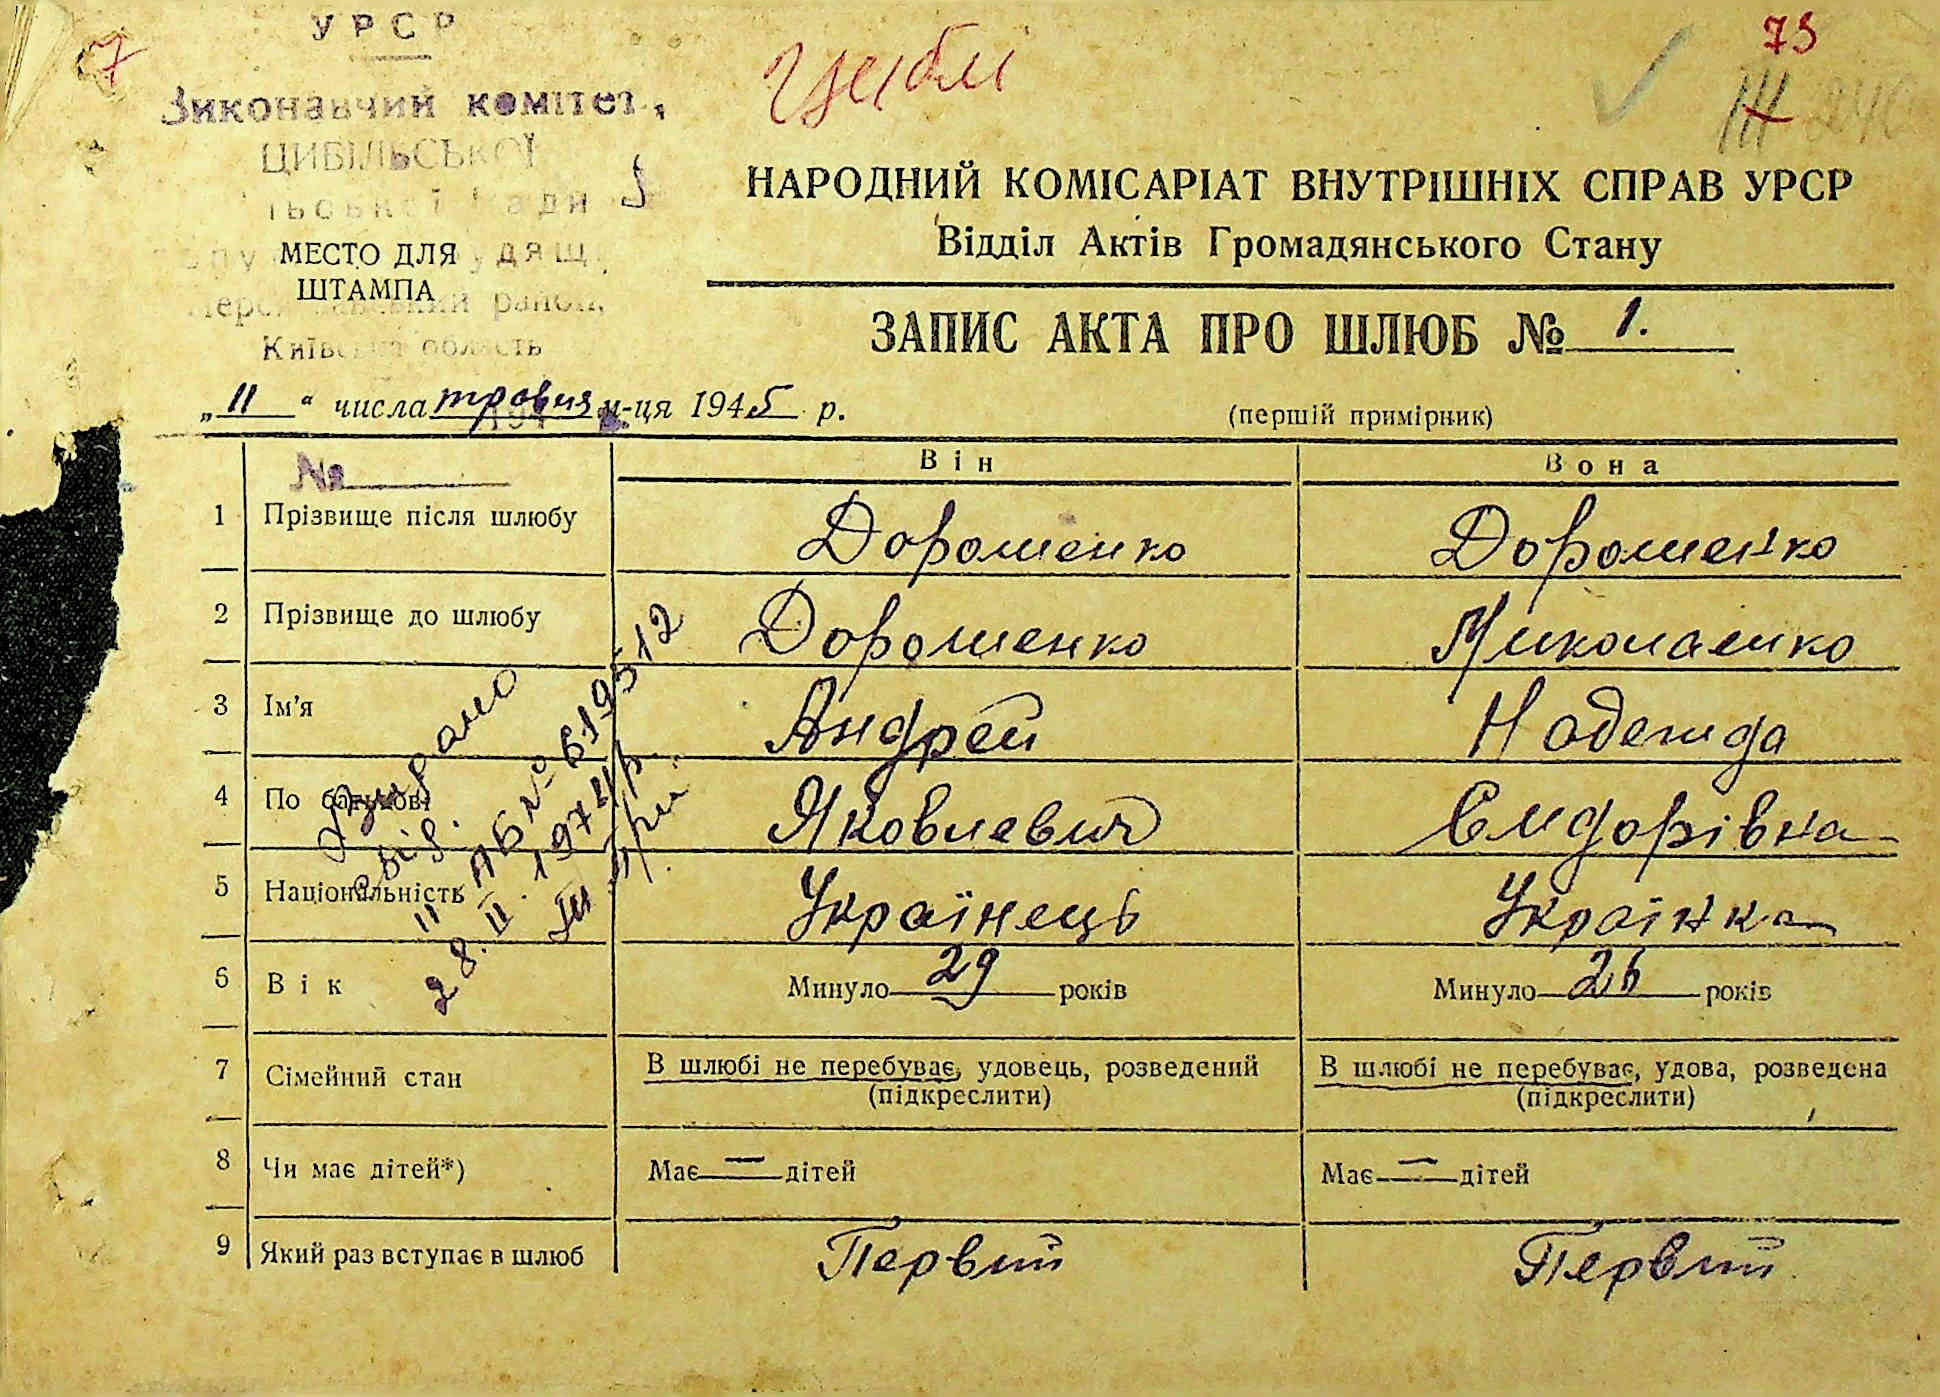 УРСР
Виконавчий комітет,
ЦИБІЛЬСЬКОЇ
МЕСТО ДЛЯ
ШТАМПА
район,
Київська область
7
Циблі
73
НАРОДНИЙ КОМІСАРІАТ ВНУТРІШНІХ СПРАВ УРСР
Відділ Актів Громадянського Стану
ЗАПИС АКТА ПРО ШЛЮБ № 1.
„11“ числа травня м-ця 1945 р.
(першій примірник)
№
Він Вона
1 Прізвище після шлюбу Дорошенко Дорошенко
2 Прізвище до шлюбу Дорошенко Миколаенко
3 Ім'я Андрей Надежда
4 По батькові Яковлевич Сидорівна
5 Національність Українець Українка
6 Вік Минуло 29 років Минуло 26 років
7 Сімейний стан В шлюбі не перебуває, удовець, розведений (підкреслити) В шлюбі не перебуває, удова, розведена (підкреслити)
8 Чи має дітей*) Має — дітей Має — дітей
9 Який раз вступає в шлюб Первий Первий
свід.
II АБ № 619512
28.II.1974 р.